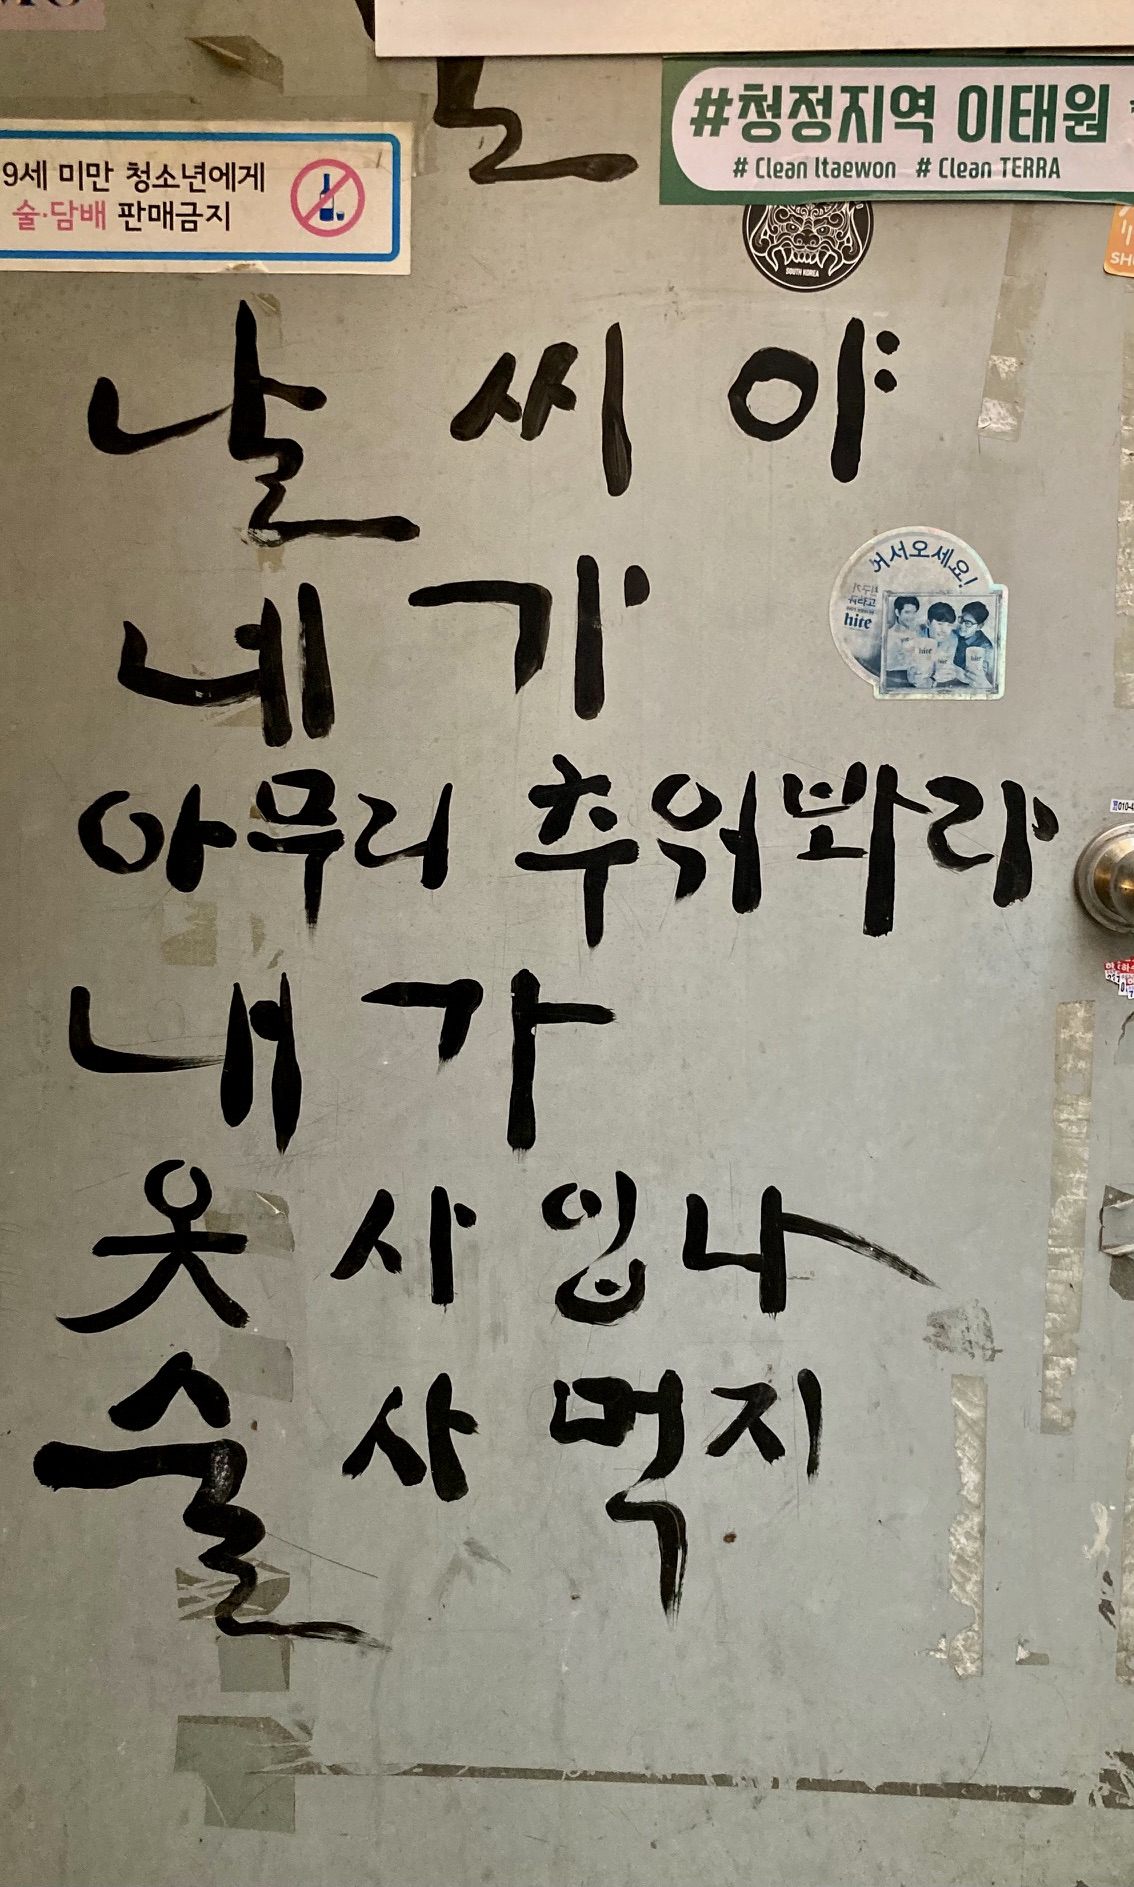 #청정지역 이태원
# Clean Itaewon # Clean TERRA
9세 미만 청소년에게
술·담배 판매금지
SOUTH KOREA
날씨야
네가
아무리 추워봐라
내가
옷 사 입나
술 사 먹지
어서오세요!
hite